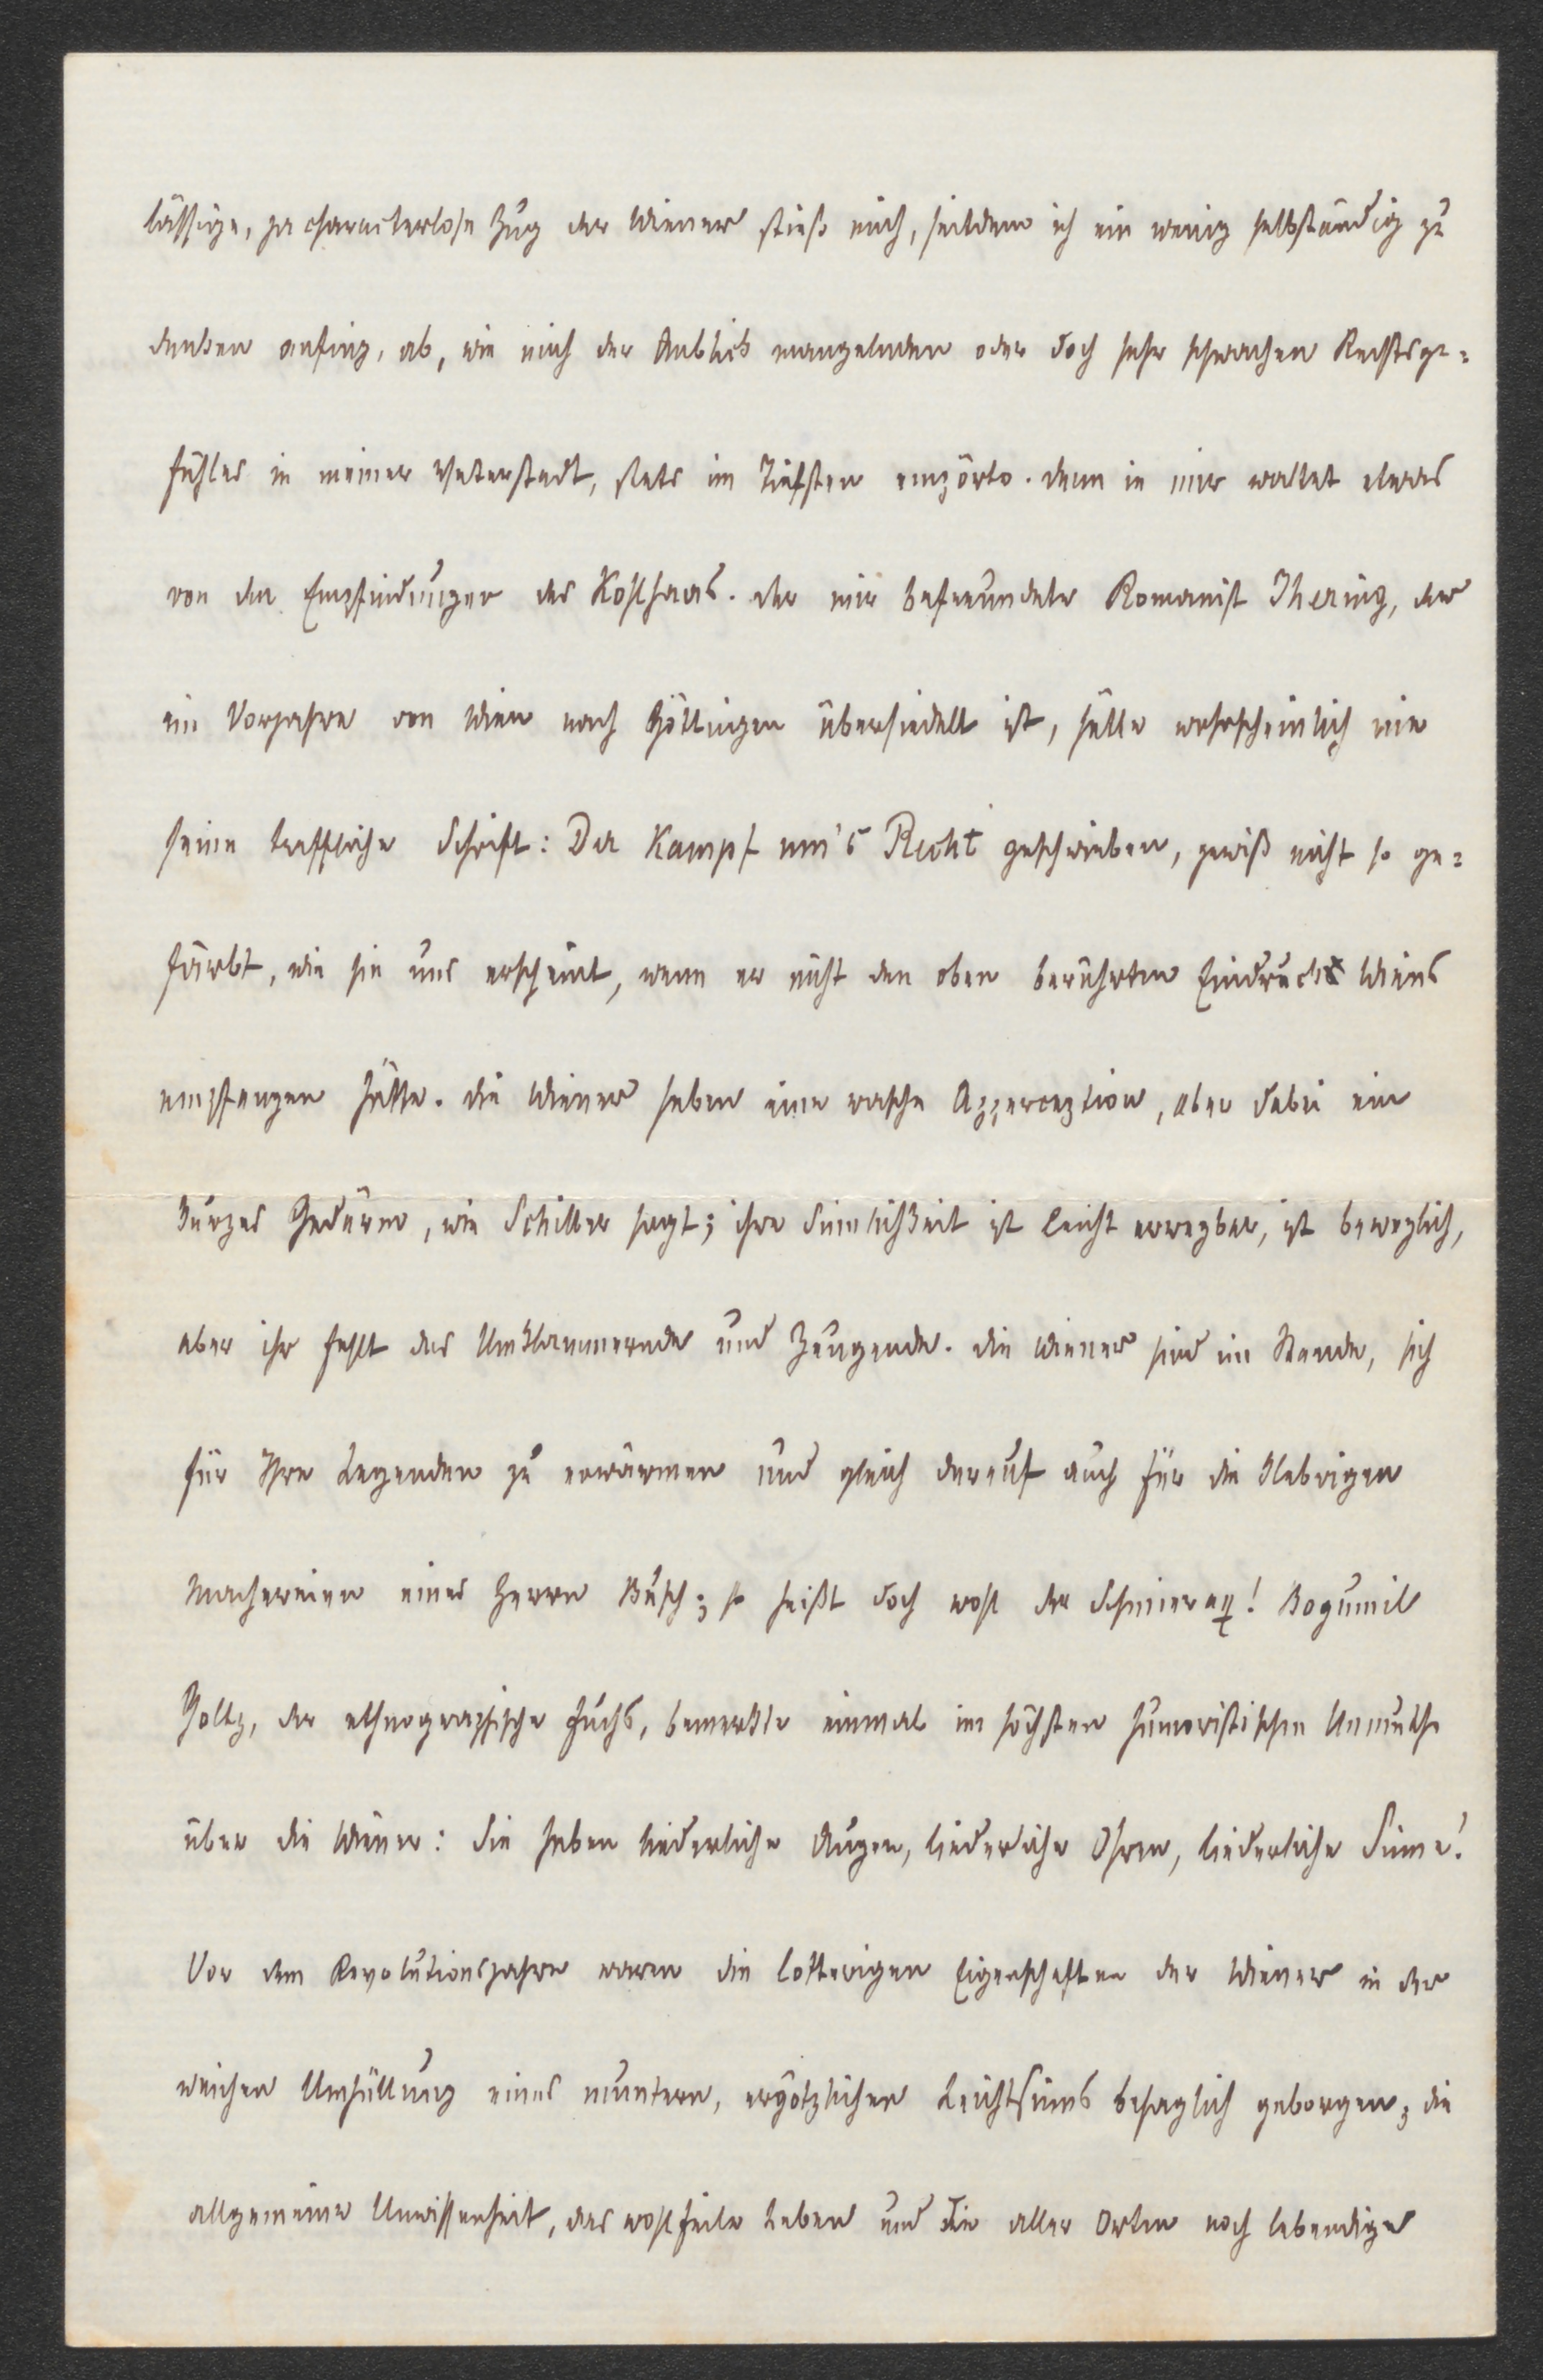 lässige, ja characterlose Zug der Wiener stieß mich, seitdem ich ein wenig selbständig zu
denken anfing, ab, wie mich der Anblick mangelnden oder doch sehr schwachen Rechtsge=
fühles in meiner Vaterstadt, stets im Tiefsten empörte. Denn in mir waltet etwas
von den Empfindungen des Kohlhaas. Der mir befreundete Romanist Ihering, der
im Vorjahre von Wien nach Göttingen übersiedelt ist, hätte wahrscheinlich nie
seine treffliche Schrift: Der Kampf um's Recht geschrieben, gewiß nicht so ge=
färbt, wie sie uns erscheint, wenn er nicht den oben berührten Eindruck Wiens
empfangen hätte. Die Wiener haben eine rasche Apperception, aber dabei ein
kurzes Gedärm, wie Schiller sagt; ihre Sinnlichkeit ist leicht erregbar, ist beweglich,
aber ihr fehlt das Umklammernde und Zeugende. Die Wiener sind im Stande, sich
für Ihre Legenden zu erwärmen und gleich darauf auch für die klebrigen
Machereien eines Herrn Busch; so heißt doch wohl der Schmierax! Bogumil
Goltz, der ethnographische Fuchs, bemerkte einmal im höchsten humoristischen Unmuthe
über die Wiener: Sie haben liederliche Augen, liederliche Ohren, liederliche Sinne!
Vor dem Revolutionsjahre waren die lotterigen Eigenschaften der Wiener in der
weichen Umhüllung eines muntern, ergötzlichen Leichtsinns behaglich geborgen; die
allgemeine Unwissenheit, das wohlfeile Leben und die aller Orten noch lebendige